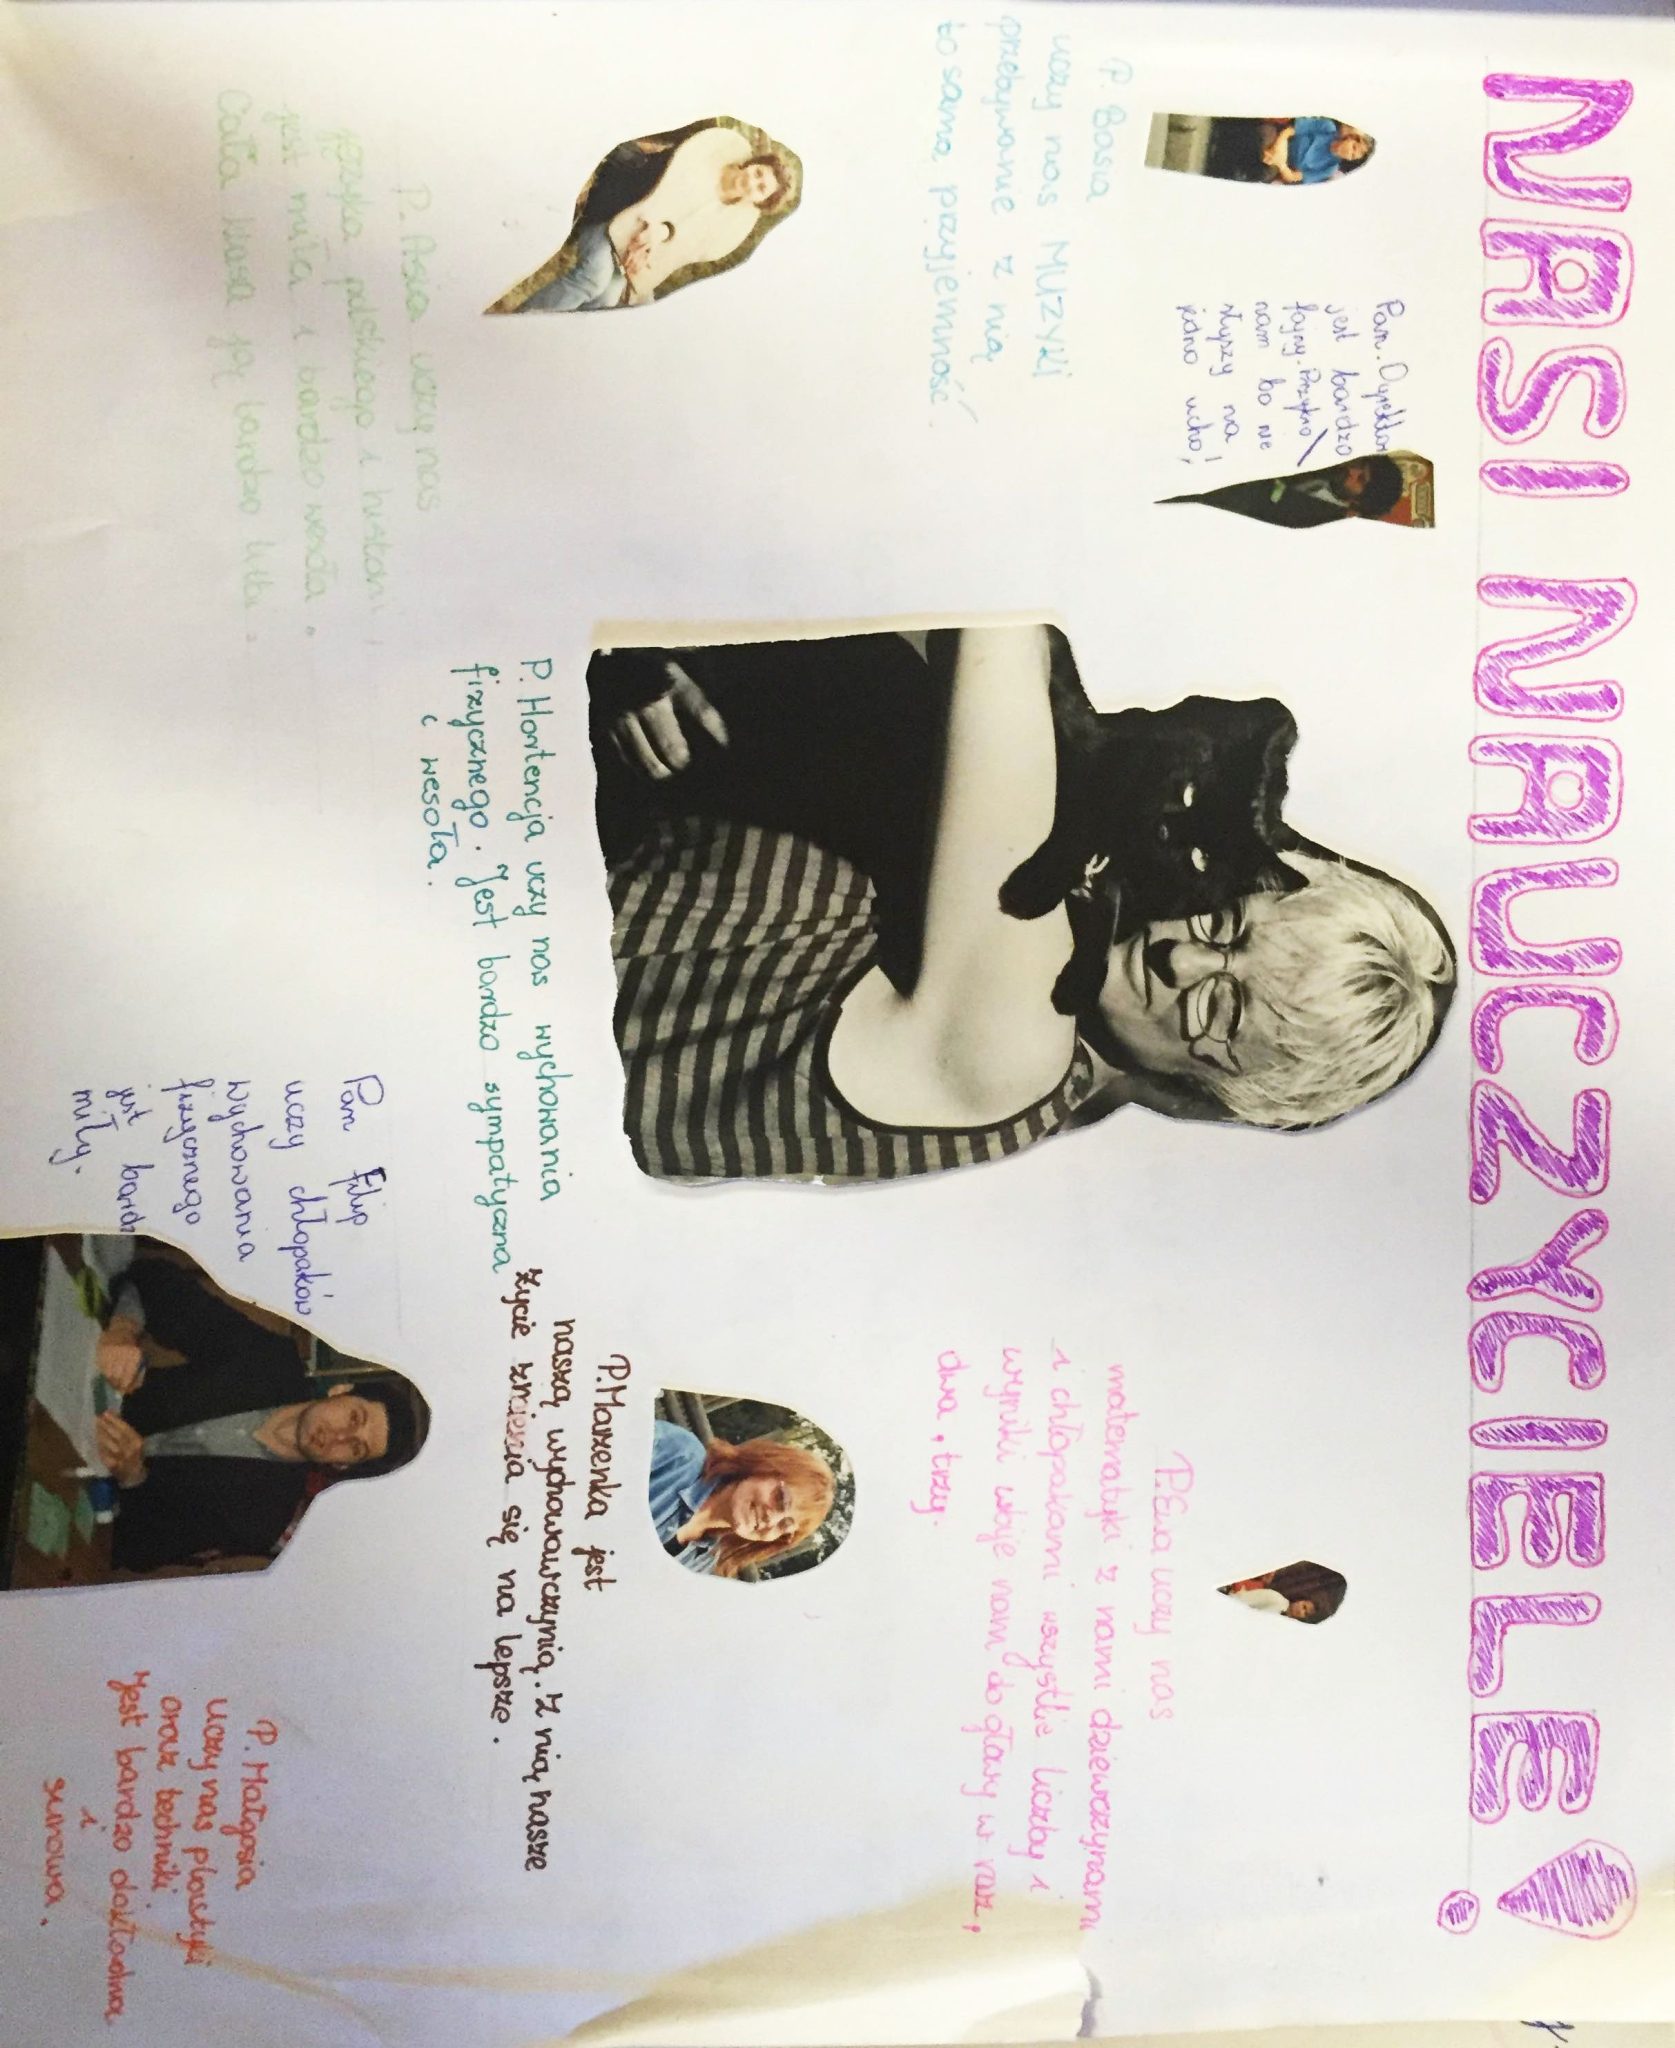 NASI NAUCZYCIELE!
P. Basia
uczy nas MUZYKI
przebywanie z nią
to sama przyjemność.
Pan. Dyrektor
jest bardzo
fajny. Przykro
nam bo nie
słyszy na
jedno ucho!
P. Ewa uczy nas
matematyki z nami dziewczynami
i chłopakami wszystkie liczby i
wyniki wbije nam do głowy w raz,
dwa, trzy.
P. Asia uczy nas
języka polskiego i historii,
jest miła i bardzo wesoła.
Cała klasa ją bardzo lubi.
P. Hortencja uczy nas wychowania
fizycznego. Jest bardzo sympatyczna
i wesoła.
P. Marzenka jest
naszą wychowawczynią. Z nią nasze
życie zmienia się na lepsze.
Pan Filip
uczy chłopaków
wychowania
fizycznego
jest bardz
miły.
P. Małgosia
uczy nas plastyki
oraz techniki
jest bardzo dokładna
i
surowa.